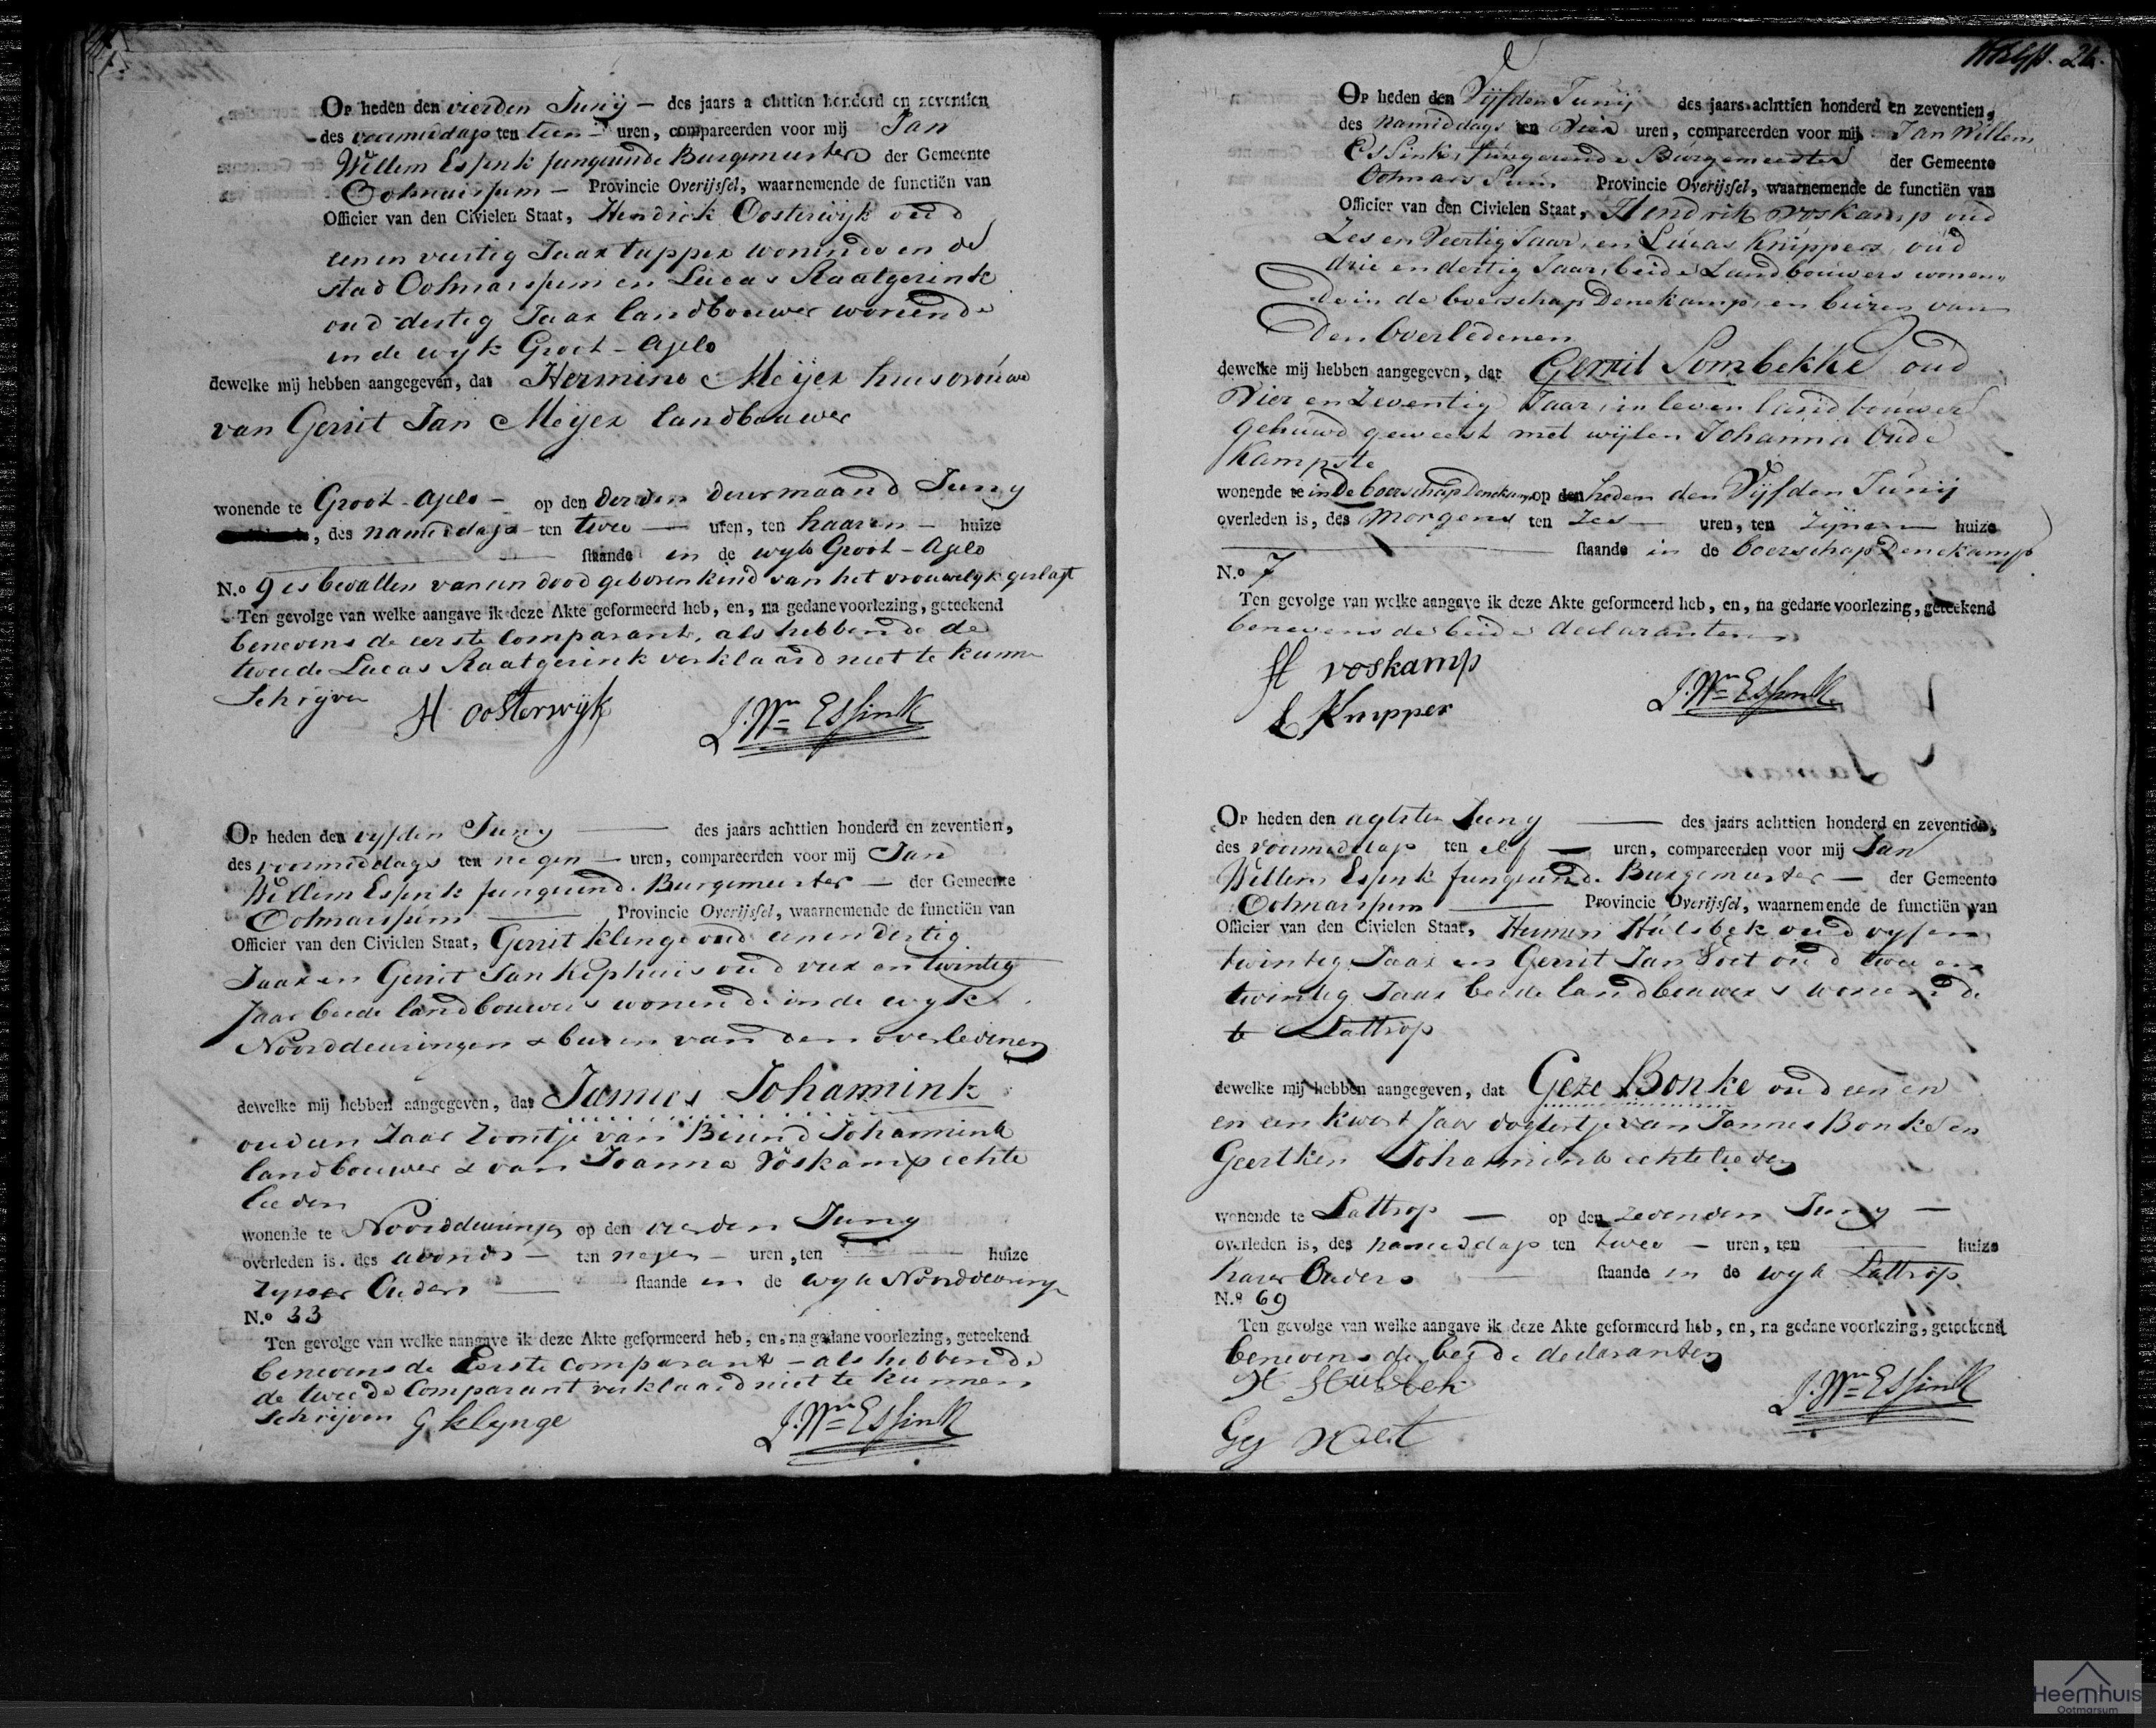 Op heden den vierden Junij — des jaars achttien honderd en zeventien
des voormiddags ten tien — uren, compareerden voor mij Jan
Willem Essink fungeerende Burgemeester der Gemeente
Ootmarssum — Provincie Overijssel, waarnemende de functiën van
Officier van den Civielen Staat, Hendrick Oosterwijk oud
een en veertig Jaar tapper wonende in de
stad Ootmarssum en Lucas Raatgerink
oud dertig Jaar landbouwer wonende
in de wyk Groot-Agelo
dewelke mij hebben aangegeven, dat Hermine Meijer huisvrouw
van Gerrit Jan Meijer landbouwer
wonende te Groot-Agelo — op den derden dezer maand Juny
, des namiddags — ten twee — uren, ten haaren — huize
— staande in de wyk Groot-Agelo
N.o 9 is bevallen van een dood geboren kind van het vrouwelyk geslagt
Ten gevolge van welke aangave ik deze Akte geformeerd heb, en, na gedane voorlezing, geteekend
benevens de eerste Comparant, als hebbende de
tweede Lucas Raatgerink verklaard niet te kunnen
Schrijven
H oosterwijk
J. Wm Essink
Op heden den vyfden Juny — des jaars achttien honderd en zeventien,
des voormiddags ten negen — uren, compareerden voor mij Jan
Willem Essink fungeerend. Burgemeester — der Gemeente
Ootmarssum — Provincie Overijssel, waarnemende de functiën van
Officier van den Civielen Staat, Gerrit Klinge oud een en dertig
Jaar en Gerrit Jan Kiphuis oud vier en twintig
Jaar beide landbouwers wonende in de wyk
Noorddeuringen & buren van den overledenen
dewelke mij hebben aangegeven, dat Jannes Johannink
oud een Jaar Zoontje van Berend Johannink
landbouwer & van Joanna Voskamp echte
lieden
wonende te Noorddeuringen op den vierden Juny
overleden is, des avonds — ten negen — uren, ten — huize
zyner Ouders — staande in de wyk Noorddeuringe
N.o 33
Ten gevolge van welke aangave ik deze Akte geformeerd heb, en, na gedane voorlezing, geteekend
benevens de Eerste Comparant — als hebbende
de tweede Comparant verklaard niet te kunnen
schrijven
G klynge
J. Wm Essink
26.
Op heden den Vijfden Junij des jaars achttien honderd en zeventien,
des Namiddags ten Vier uren, compareerden voor mij Jan Willem
Essink, fungerende Burgemeester der Gemeente
Ootmarssum Provincie Overijssel, waarnemende de functiën van
Officier van den Civielen Staat, Hendrik Voskamp oud
Zes en Veertig Jaar, en Lucas Knippers, oud
drie en dertig Jaar, beide Landbouwers wonen-
de in de boerschap Denekamp, en buren van
den Overledenen
dewelke mij hebben aangegeven, dat Gerrit Sombekke oud
Vier en Zeventig Jaar, in leven landbouwer
gehuwd geweest met wijlen Johanna Oude
Kampste
wonende te in de boerschap Denekamp op den heden den Vijfden Junij
overleden is, des Morgens ten Zes — uren, ten Zijnen — huize
— staande in de boerschap Denekamp
N.o 7
Ten gevolge van welke aangave ik deze Akte geformeerd heb, en, na gedane voorlezing, geteekend
benevens de beide declaranten
H voskamp
L Knipper
J. Wm Essink
Op heden den agtsten Juny — des jaars achttien honderd en zeventien,
des voormiddags ten elf — uren, compareerden voor mij Jan
Willem Essink fungeerend. Burgemeester — der Gemeente
Ootmarssum — Provincie Overijssel, waarnemende de functiën van
Officier van den Civielen Staat, Hermen Hulsbek oud vyf en
twintig Jaar en Gerrit Jan Voet oud twee en
twintig Jaar beide landbouwers wonende
te Lattrop
dewelke mij hebben aangegeven, dat Geze Bonke oud een en
en een kwart Jaar dogtertje van Jannes Bonke en
Geertken Johannink echtelieden
wonende te Lattrop — op den zevenden Juny —
overleden is, des namiddags ten twee — uren, ten — huize
harer Ouders — staande in de wyk Lattrop
N.o 69
Ten gevolge van welke aangave ik deze Akte geformeerd heb, en, na gedane voorlezing, geteekend
benevens de beyde declaranten
H Hulsbek
J. Wm Essink
Heemhuis
Ootmarsum